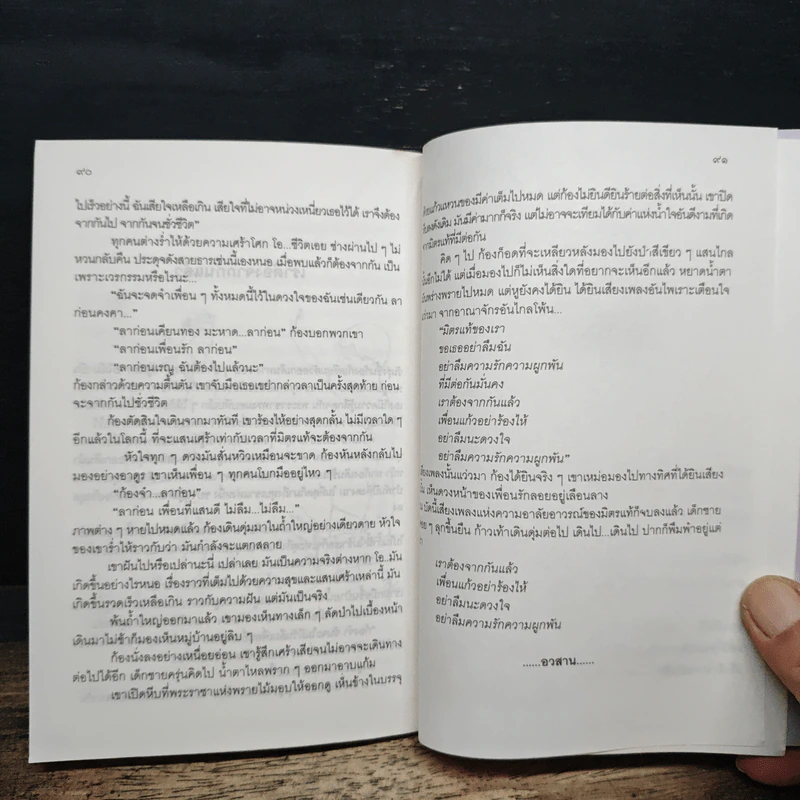 ๙๐
ไปเร็วอย่างนี้ ฉันเสียใจเหลือเกิน เสียใจที่ไม่อาจหน่วงเหนี่ยวเธอไว้ได้ เราจึงต้อง
จากกันไป จากกันจนชั่วชีวิต”
ทุกคนต่างร่ำไห้ด้วยความเศร้าโศก โอ...ชีวิตเอย ช่างผ่านไป ๆ ไม่
หวนกลับคืน ประดุจดังสายธารเช่นนี้เองหนอ เมื่อพบแล้วก็ต้องจากกัน เป็น
เพราะเวรกรรมหรือไรนะ...
“ฉันจะจดจำเพื่อน ๆ ทั้งหมดนี้ไว้ในดวงใจของฉันเช่นเดียวกัน ลา
ก่อนคงคา...”
“ลาก่อนเคียนทอง มะหาด...ลาก่อน” ก้องบอกพวกเขา
“ลาก่อนเพื่อนรัก ลาก่อน”
“ลาก่อนเรณู ฉันต้องไปแล้วนะ”
ก้องกล่าวด้วยความตื้นตัน เขาจับมือเธอเขย่ากล่าวลาเป็นครั้งสุดท้าย ก่อน
จะจากกันไปชั่วชีวิต
ก้องตัดสินใจเดินจากมาทันที เขาร้องไห้อย่างสุดกลั้น ไม่มีเวลาใด ๆ
อีกแล้วในโลกนี้ ที่จะแสนเศร้าเท่ากับเวลาที่มิตรแท้จะต้องจากกัน
หัวใจทุก ๆ ดวงมันสั่นหวิวเหมือนจะขาด ก้องหันหลังกลับไป
มองอย่างอาดูร เขาเห็นเพื่อน ๆ ทุกคนโบกมืออยู่ไหว ๆ
“ก้องจ๋า...ลาก่อน”
“ลาก่อน เพื่อนที่แสนดี ไม่ลืม...ไม่ลืม...”
ภาพต่าง ๆ หายไปหมดแล้ว ก้องเดินดุ่มมาในถ้ำใหญ่อย่างเดียวดาย หัวใจ
ของเขาร่ำไห้ราวกับว่า มันกำลังจะแตกสลาย
เขาฝันไปหรือเปล่านะนี่ เปล่าเลย มันเป็นความจริงต่างหาก โอ..มัน
เกิดขึ้นอย่างไรหนอ เรื่องราวที่เต็มไปด้วยความสุขและแสนเศร้าเหล่านี้ มัน
เกิดขึ้นรวดเร็วเหลือเกิน ราวกับความฝัน แต่มันเป็นจริง
พ้นถ้ำใหญ่ออกมาแล้ว เขามองเห็นทางเล็ก ๆ ลัดป่าไปเบื้องหน้า
เดินมาไม่ช้าก็มองเห็นหมู่บ้านอยู่ลิบ ๆ
ก้องนั่งลงอย่างเหนื่อยอ่อน เขารู้สึกเศร้าเสียจนไม่อาจจะเดินทาง
ต่อไปได้อีก เด็กชายครุ่นคิดไป น้ำตาไหลพราก ๆ ออกมาอาบแก้ม
เขาเปิดหีบที่พระราชาแห่งพรายไม้มอบให้ออกดู เห็นข้างในบรรจุ
๙๑
แก้วแหวนของมีค่าเต็มไปหมด แต่ก้องไม่ยินดียินร้ายต่อสิ่งที่เห็นนั้น เขาปิด
ลงดังเดิม มันมีค่ามากก็จริง แต่ไม่อาจจะเทียมได้กับค่าแห่งน้ำใจอันดีงามที่เกิด
มิตรแท้ที่มีต่อกัน
คิด ๆ ไป ก้องก็อดที่จะเหลียวหลังมองไปยังป่าสีเขียว ๆ แสนไกล
อีกไม่ได้ แต่เมื่อมองไปก็ไม่เห็นสิ่งใดที่อยากจะเห็นอีกแล้ว หยาดน้ำตา
พร่างพรายไปหมด แต่หูยังคงได้ยิน ได้ยินเสียงเพลงอันไพเราะเตือนใจ
แว่วมา จากอาณาจักรอันไกลโพ้น...
“มิตรแท้ของเรา
ขอเธออย่าลืมฉัน
อย่าลืมความรักความผูกพัน
ที่มีต่อกันมั่นคง
เราต้องจากกันแล้ว
เพื่อนแก้วอย่าร้องไห้
อย่าลืมนะดวงใจ
อย่าลืมความรักความผูกพัน”
เสียงเพลงนั้นแว่วมา ก้องได้ยินจริง ๆ เขาเหม่อมองไปทางทิศที่ได้ยินเสียง
เห็นดวงหน้าของเพื่อนรักลอยอยู่เลือนลาง
บัดนี้เสียงเพลงแห่งความอาลัยอาวรณ์ของมิตรแท้ก็จบลงแล้ว เด็กชาย
ๆ ลุกขึ้นยืน ก้าวเท้าเดินดุ่มต่อไป เดินไป...เดินไป ปากก็พึมพำอยู่แต่
เราต้องจากกันแล้ว
เพื่อนแก้วอย่าร้องไห้
อย่าลืมนะดวงใจ
อย่าลืมความรักความผูกพัน
......อวสาน......